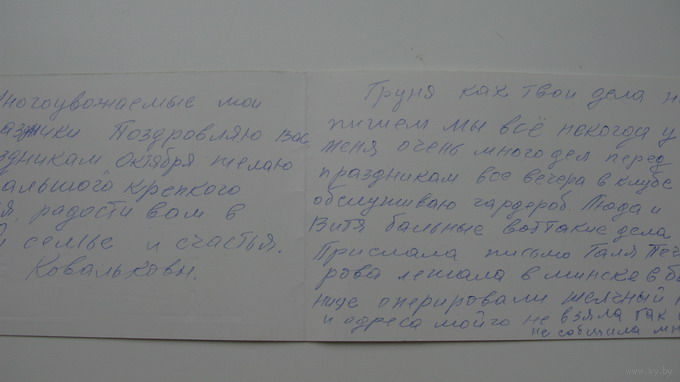 многоуважаемые мои
Поздровляю вас
здникам Октября желаю
большого крепкого
я, радости вам в
й семье и счастья.
Ковальковы.
Груня как твои дела н
пишем мы всё некогда у
меня очень много дел перед
праздникам все вечера в клубе
обслуживаю гардероб. Люда и
Витя бальные вот такие дела
Прислала письмо Галя Печ
рова лежала в минске в бо
нице оперировали желчный п
и адреса мойго не взяла так и
не собщила мн
www.ay.by